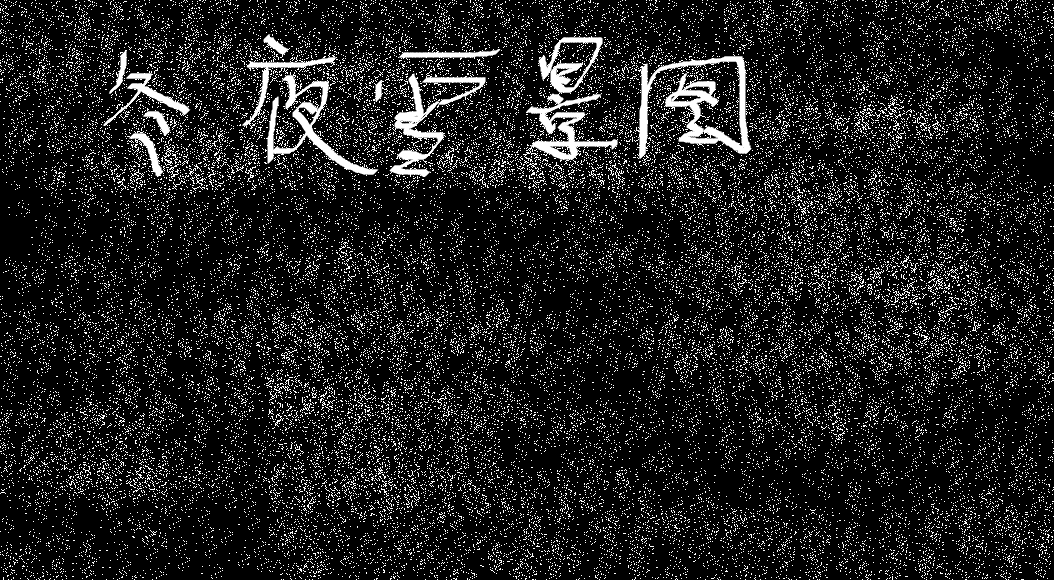 冬夜雪景图